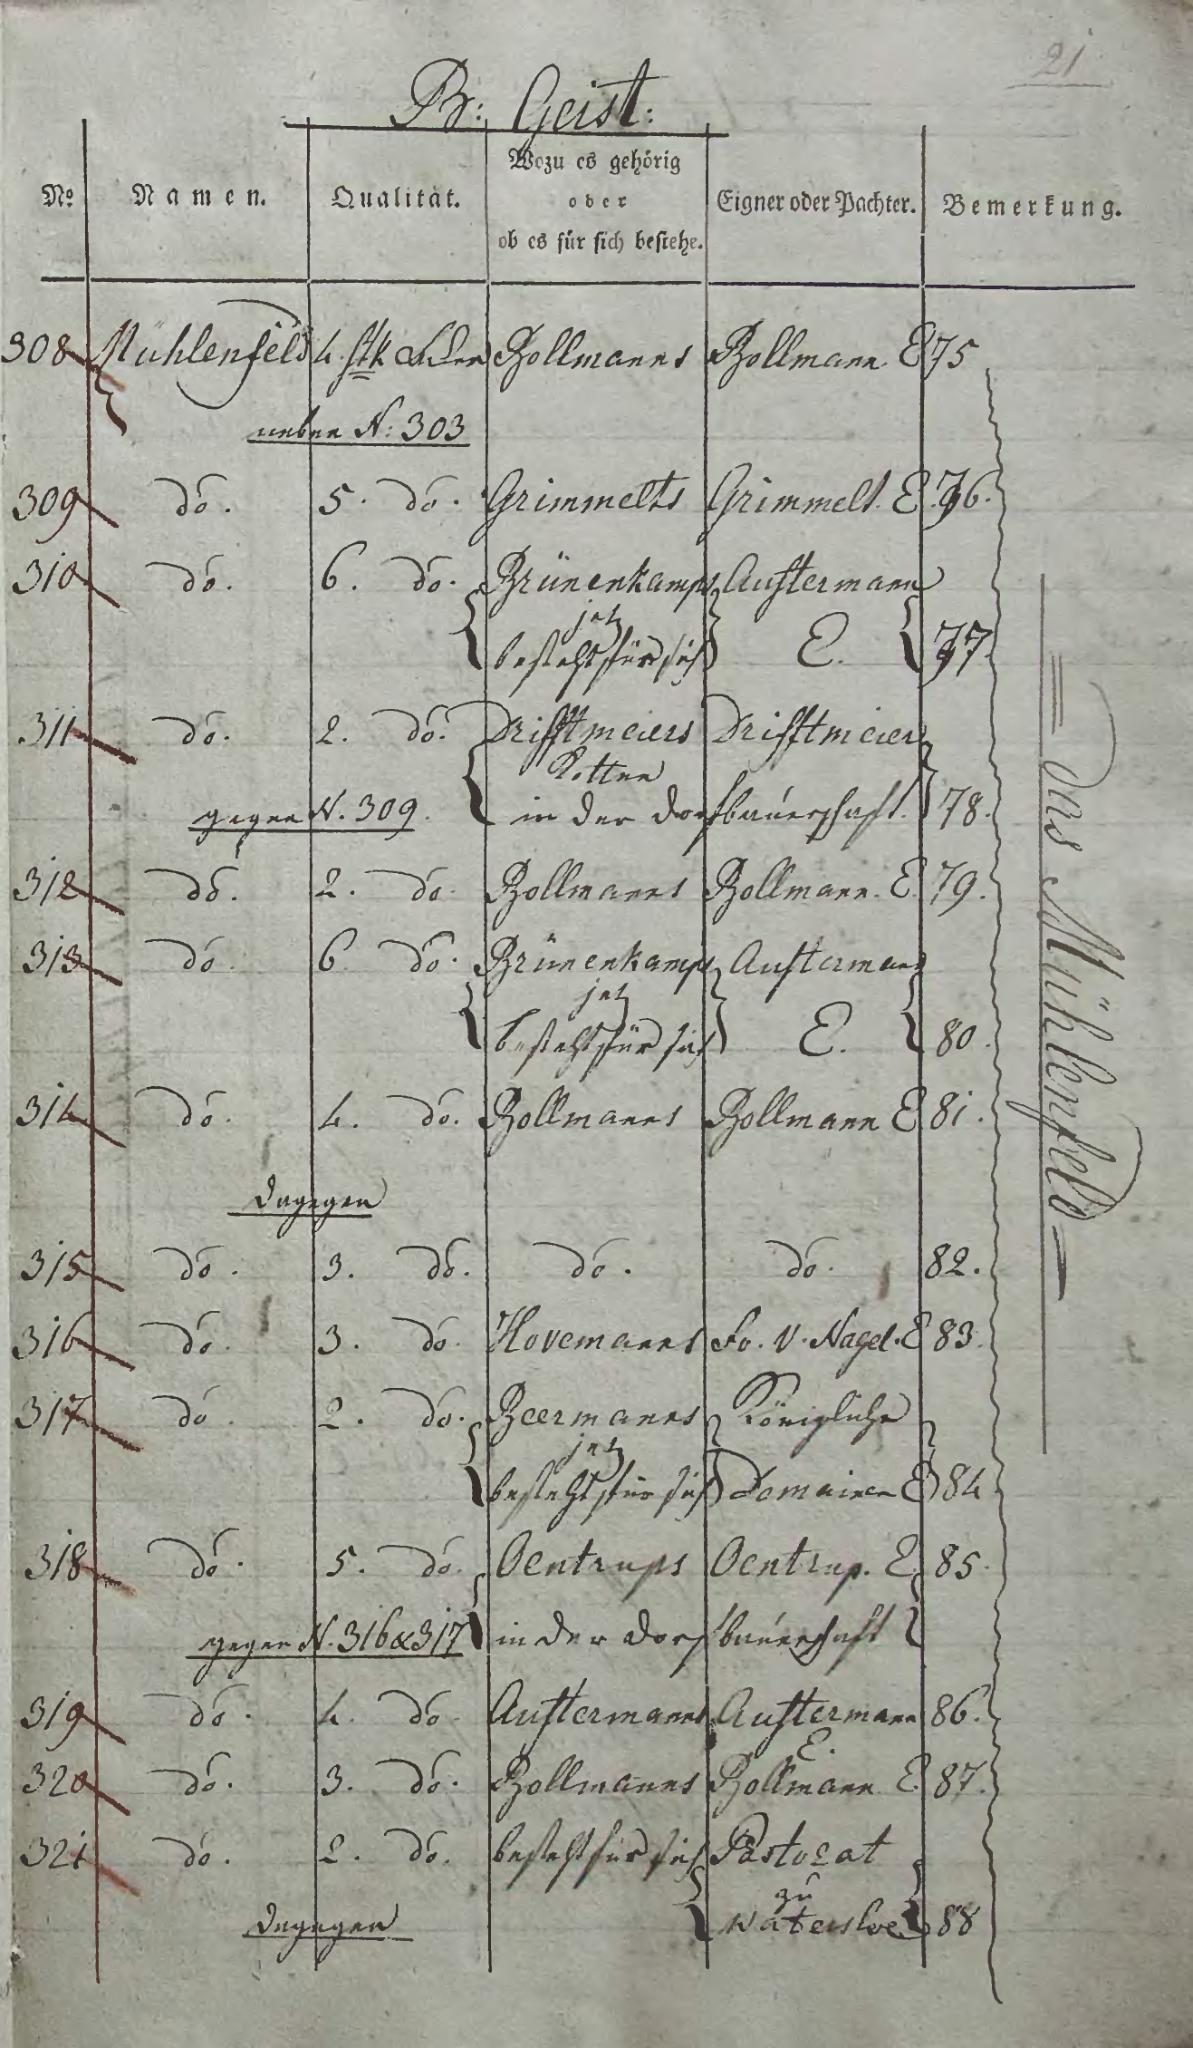 21
B: Geist:
No Namen. Qualität. Wozu es gehörig oder ob es für sich bestehe. Eigner oder Pachter. Bemerkung.
308 Mühlenfeld 4. stk Acker Bollmanns Bollmann E 75
neben N: 303
309 do. 5. do. Grimmelts Grimmelt. E. 76.
310 do. 6. do. Brünenkamps Austermann
jetz
besteht für sich E. 77.
311 do. 2. do. Drifftmeiers Drifftmeier
Kotten
gegen N. 309. in der dorfbauerschaft. 78.
312 do. 2. do Bollmanns Bollmann. E. 79.
313 do 6 do. Brünenkamps Austermann
jetz
besteht für sich E. 80.
314 do. 4. do. Bollmanns Bollmann E 81.
dagegen
315 do. 3. do. do. do. 82.
316 do. 3. do. Hovemanns Fr. V. Nagel. E 83.
317 do. 2. do. Beermanns Königliche
jetz
besteht für sich Domainen E 84
318 do. 5. do. Oentrups Oentrup. E. 85.
gegen N. 316 & 317 in der dorfbauerschaft
319 do. 4. do. Austermanns Austermann 86.
E.
320 do. 3. do. Bollmanns Bollmann E. 87.
321 do. 2. do. besteht für sich Pastorat
zu
dagegen Watersloe 88
Das Mühlenfeld